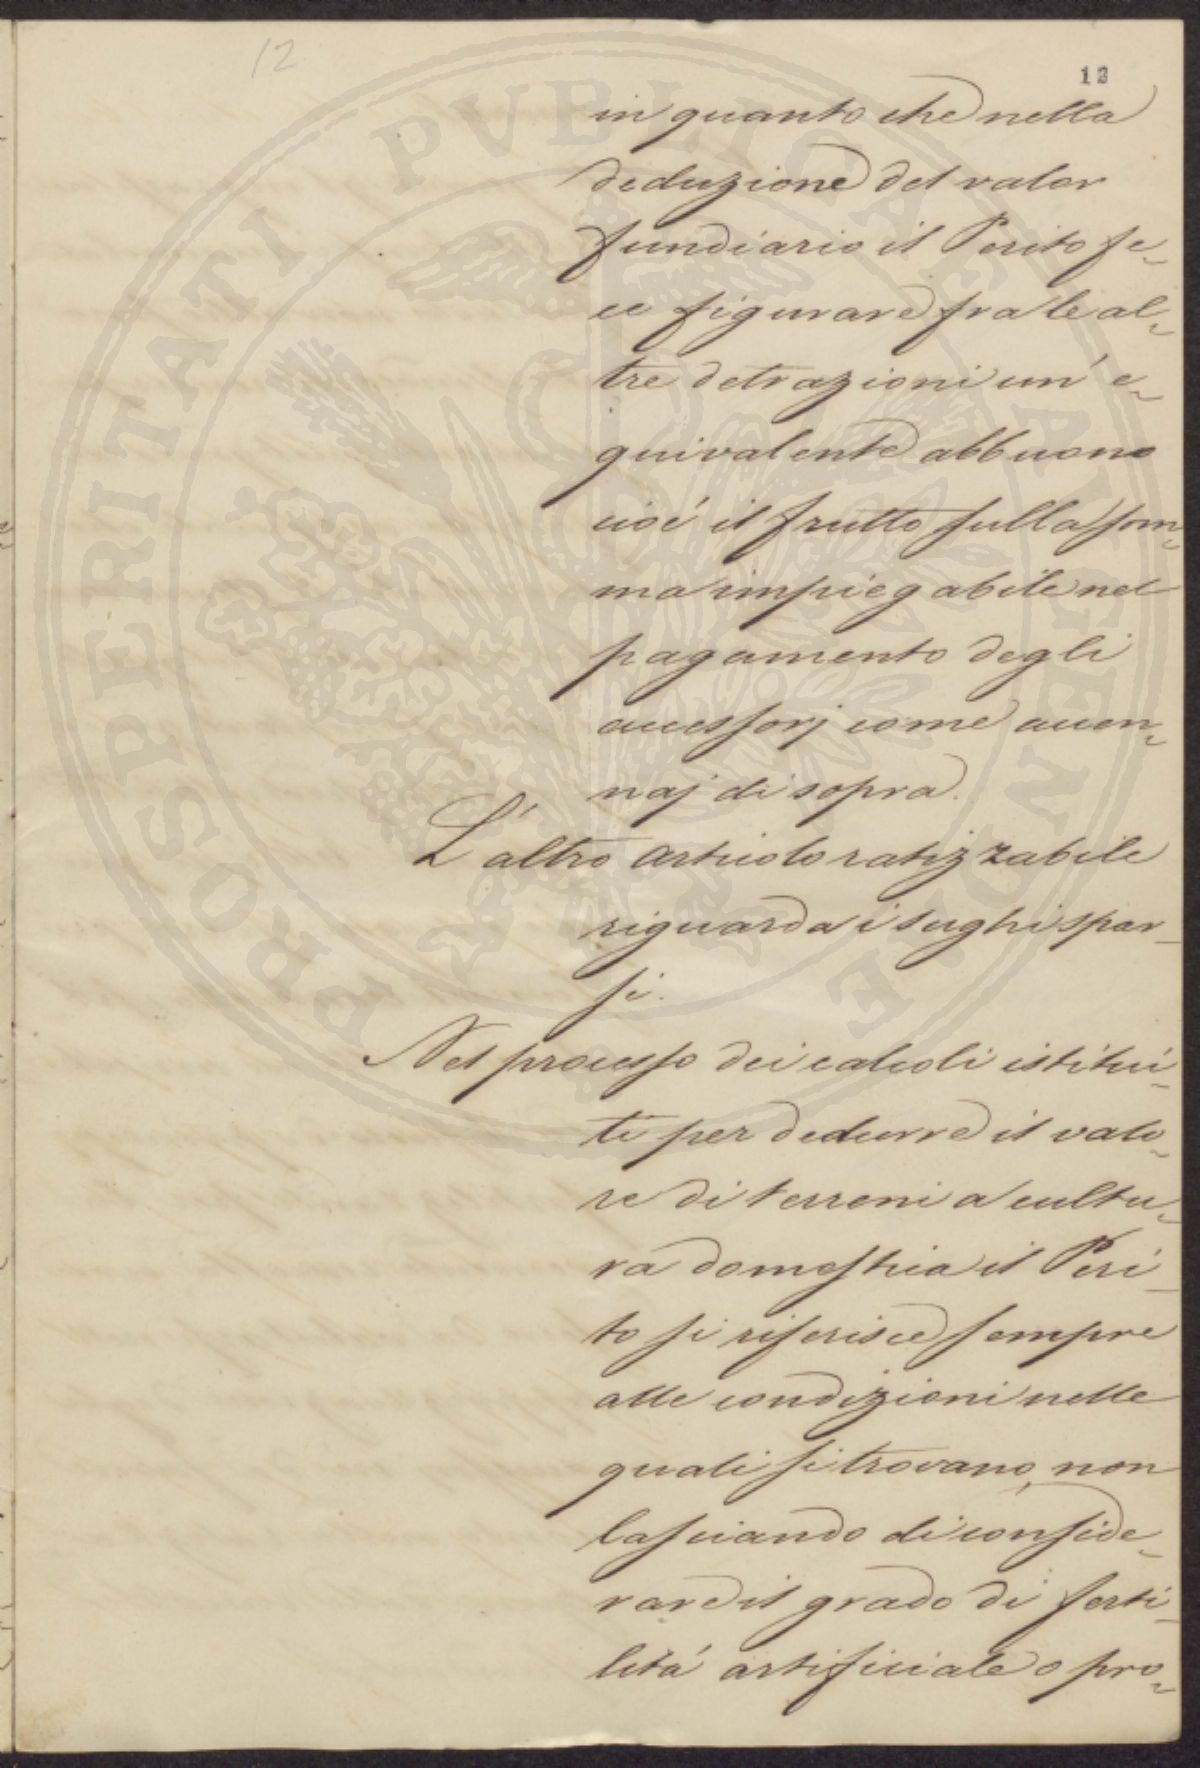 12
12
in quanto che nella
deduzione del valor
fundiario il Perito fe-
ce figurare fra le al-
tre detrazioni un' e-
quivalente abbuono
cioé il frutto sulla som-
ma impiegabile nel
pagamento degli
accessorj come accen-
naj di sopra.
L'altro articolo ratizzabile
riguarda i sughi spar-
si.
Nel processo dei calcoli istitui-
ti per dedurre il valo-
re di terreni a cultu-
ra domestica il Peri-
to si riferisce sempre
alle condizioni nelle
quali si trovano, non
lasciando di conside-
rare il grado di ferti-
litá artificiale o pro-
PROSPERITATI PVBLICAE AVGENDAE